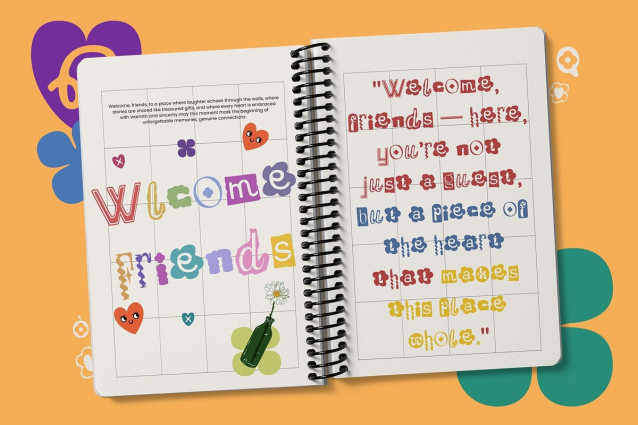 Welcome, friends, to a place where laughter echoes through the walls, where
stories are shared like treasured gifts, and where every heart is embraced
with warmth and sincerity may this moment mark the beginning of
unforgettable memories, genuine connections.
Wlcome
Friends
"Welcome,
friends — here,
you're not
just a guest,
but a piece of
the heart
that makes
this place
whole."